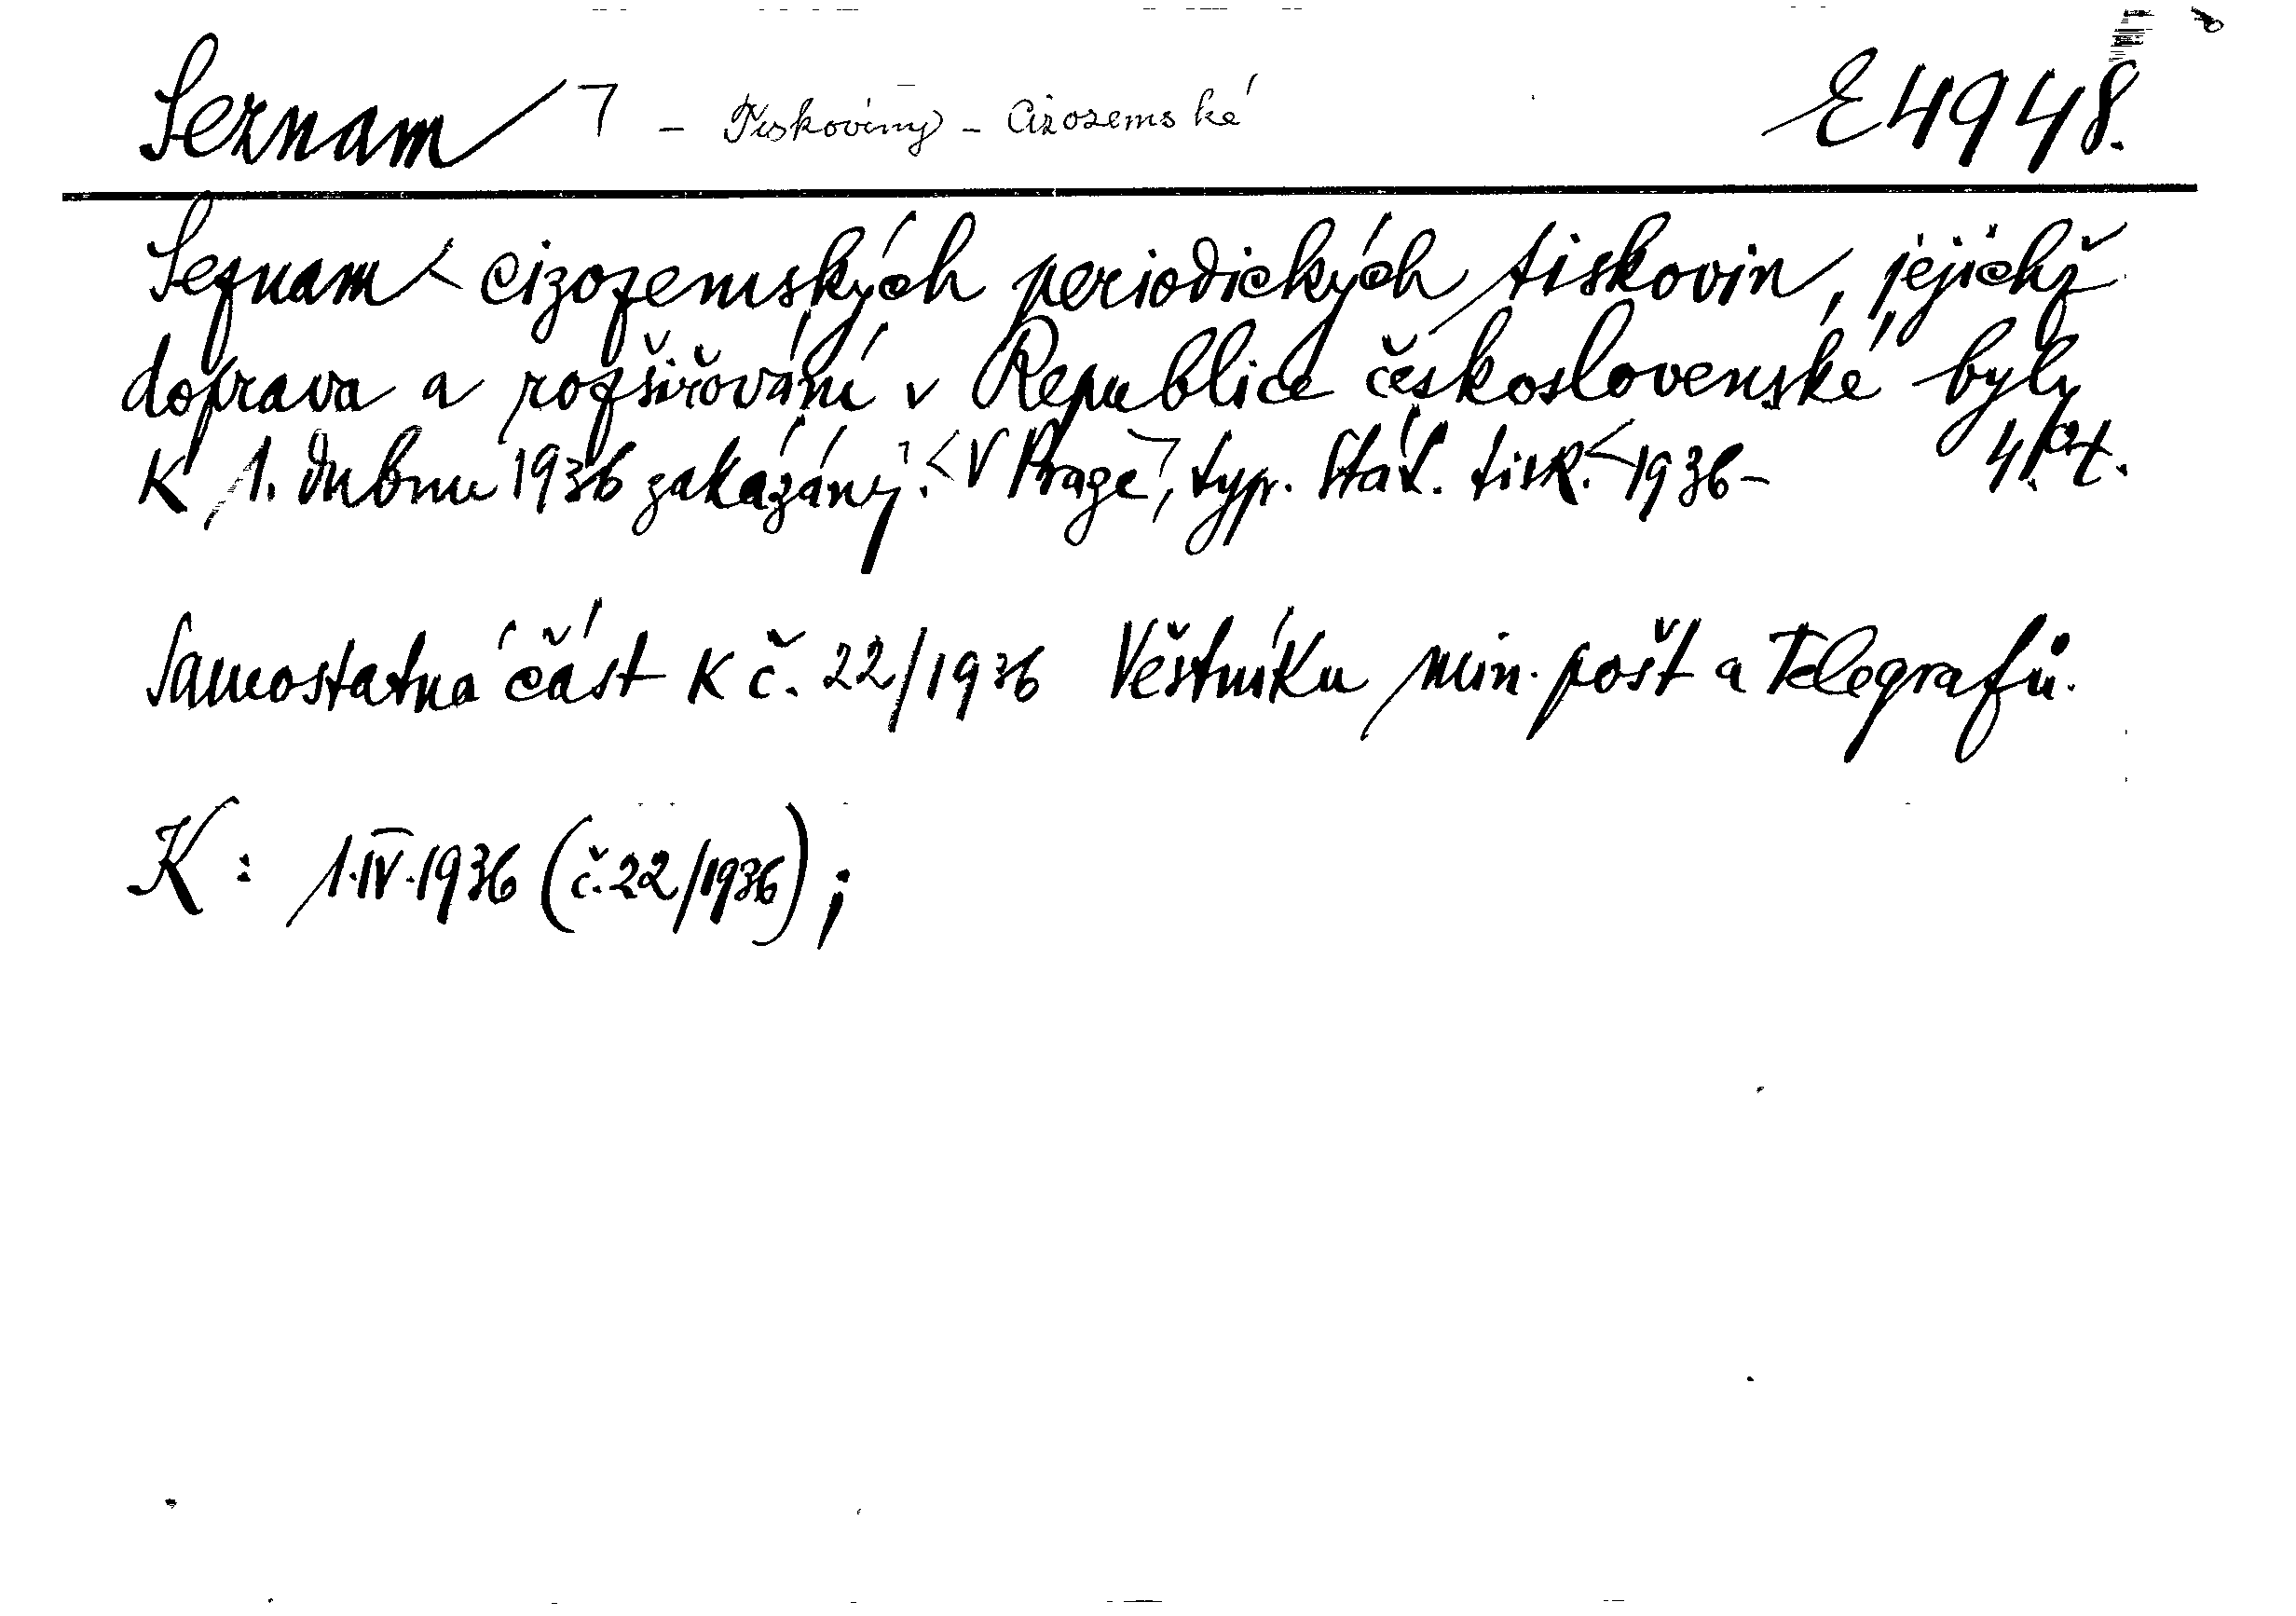 Seznam - Tiskoviny - Cizozemské E 4948.
Seznam cizozemských periodických tiskovin, jejichž
doprava a rozšiřování v Republice československé byly
K 1. dubnu 1936 zakázány. V Praze, typ. Stát. tisk. 1936- 4°.
Samostatná část K č. 22/1936 Věstníku min. pošt a Telegrafů.
K: 1.IV.1936 (č.22/1936);